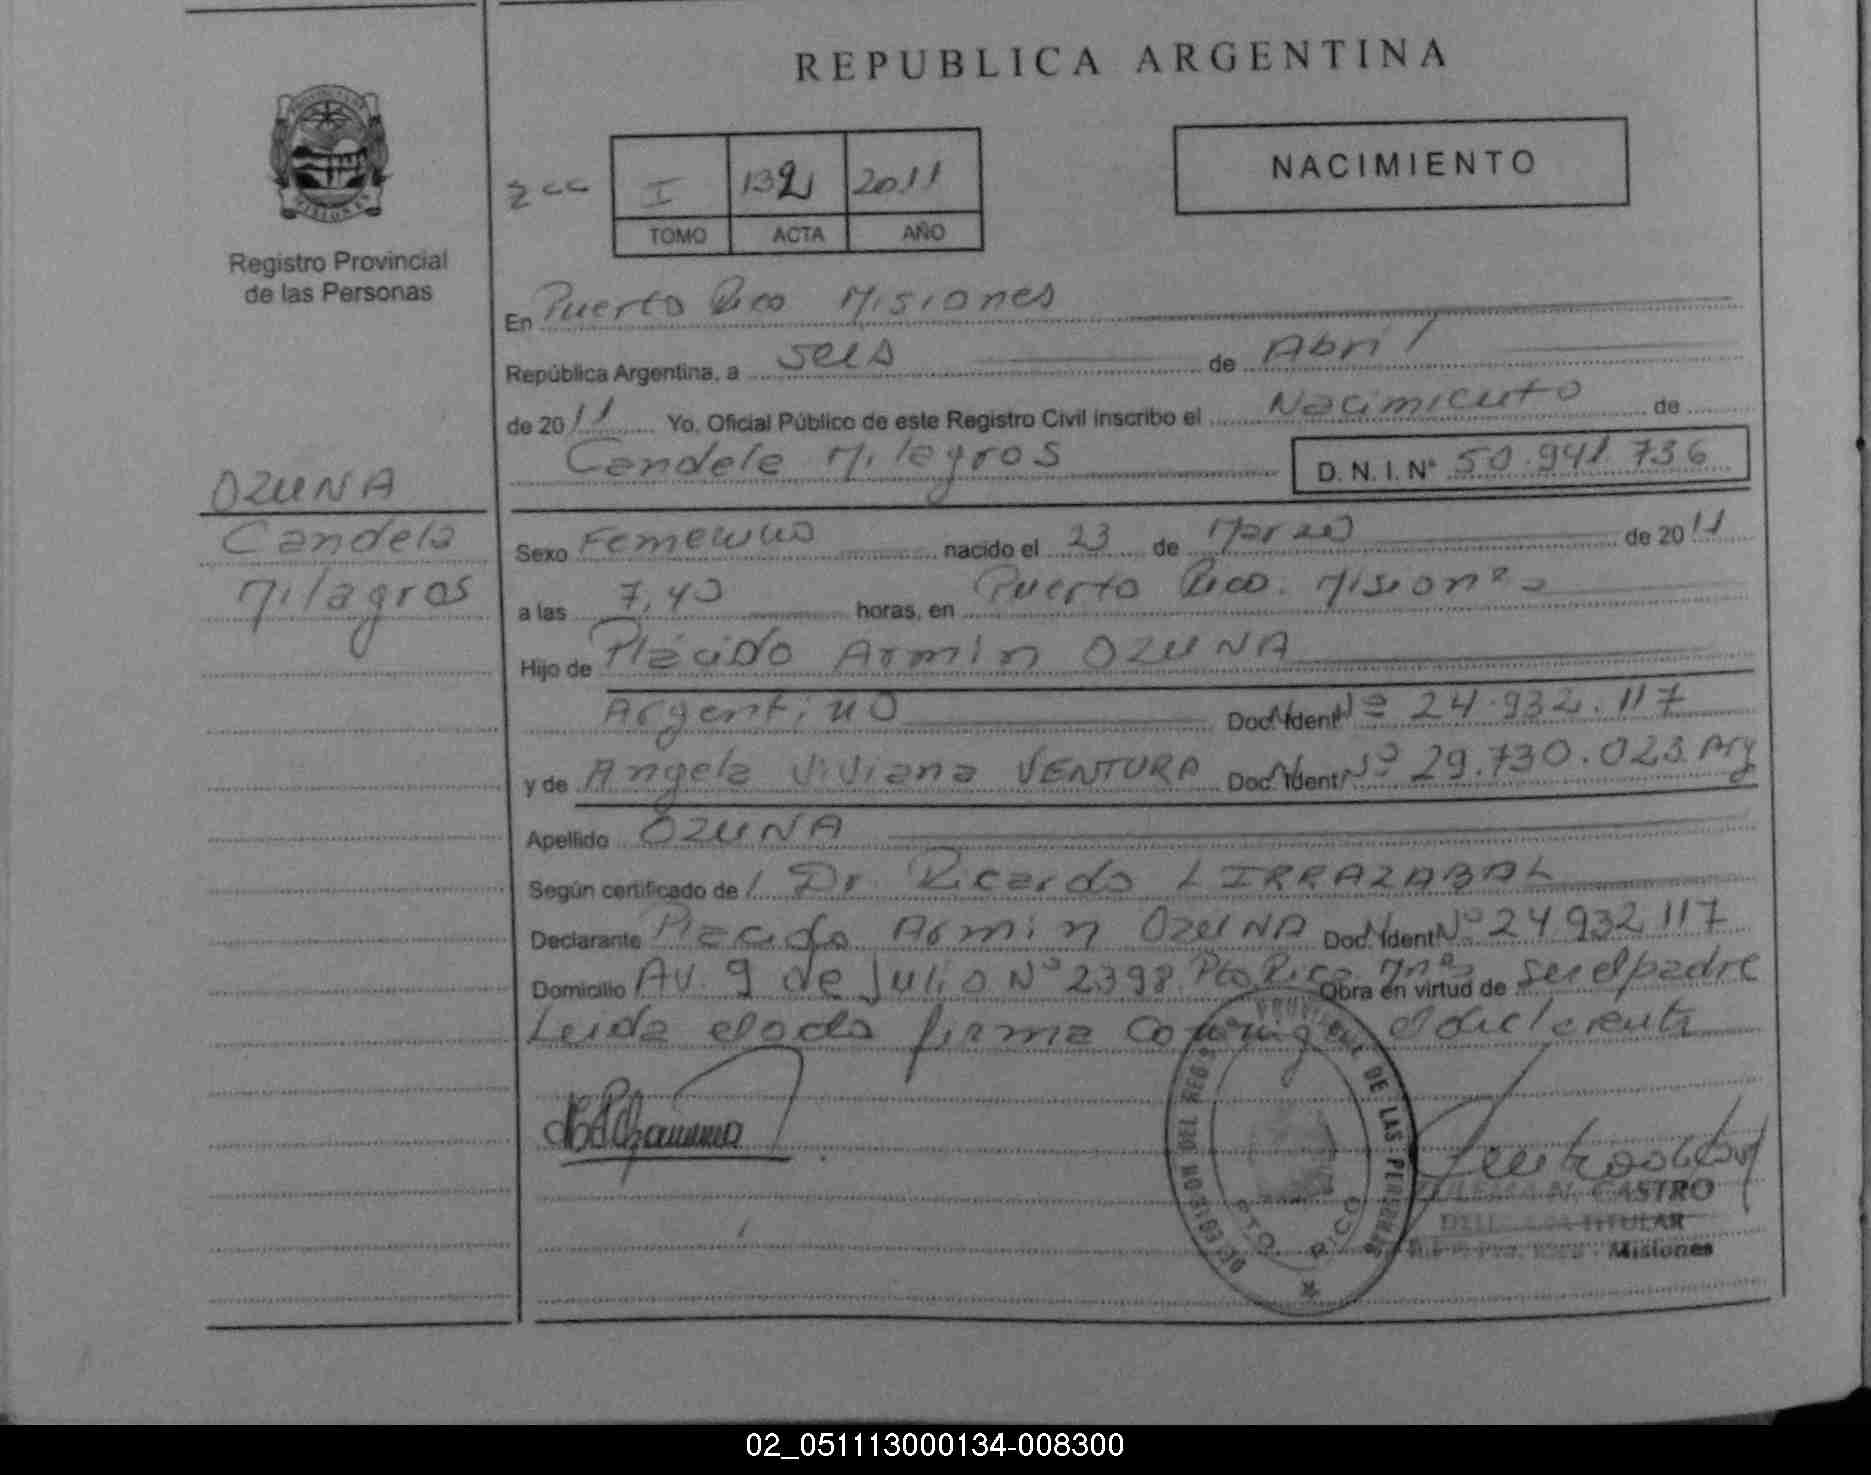 REPUBLICA ARGENTINA
PROVINCIA DE
MISIONES
Registro Provincial
de las Personas
NACIMIENTO
2 cc
I 132 2011
TOMO ACTA AÑO
En Puerto Rico Misiones
República Argentina, a seis de Abril
de 2011 Yo, Oficial Público de este Registro Civil inscribo el Nacimiento de
Candela Milagros D. N. I. Nº 50.941.736
OZUNA
Candela
Milagros
Sexo Femenino nacido el 23 de Marzo de 2011
a las 7,40 horas, en Puerto Rico. Misiones
Hijo de Plácido Armin OZUNA
Argentino Doc. Ident Nº 24.932.117
y de Angela Viviana VENTURA Doc. Ident Nº 29.730.023 Arg
Apellido OZUNA
Según certificado de Dr. Ricardo LIRRAZABAL
Declarante Placido Armin OZUNA Doc. Ident Nº 24 932 117
Domicilio Av. 9 de Julio Nº 2398. Pto Rico Mnes Obra en virtud de ser el padre
Leida el acta firma conmigo el declarente
DEL REG PROVINCIAL DE LAS PERSONAS
PTO. RICO
N. CASTRO
TITULAR
Misiones
02_051113000134-008300